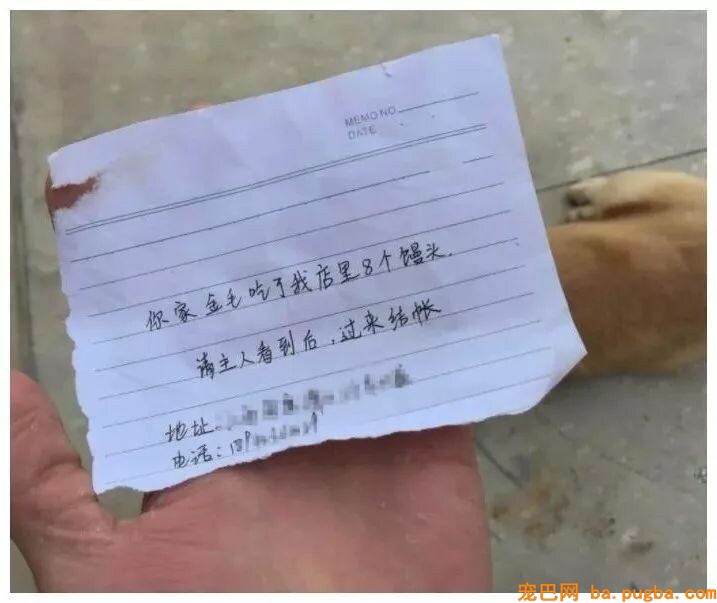 MEMO NO.
DATE
你家金毛吃了我店里8个馒头.
请主人看到后,过来结帐
地址
电话:
宠巴网 ba.pugba.com